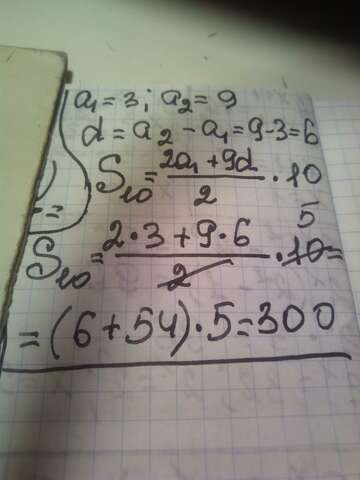 a₁ = 3; a₂ = 9
d = a₂ - a₁ = 9-3=6
S₁₀ = (2a₁ + 9d)/2 · 10
S₁₀ = (2·3 + 9·6)/2 · 10 =
5
= (6+54)·5=300